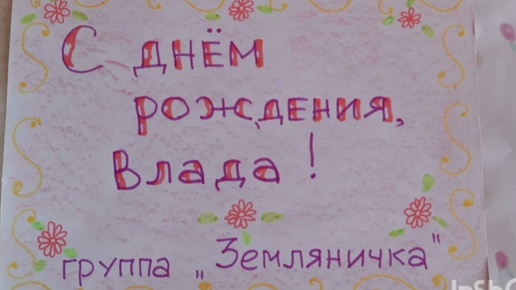 С ДНЁМ
РОЖДЕНИЯ,
Влада!
группа „Земляничка"
InSh